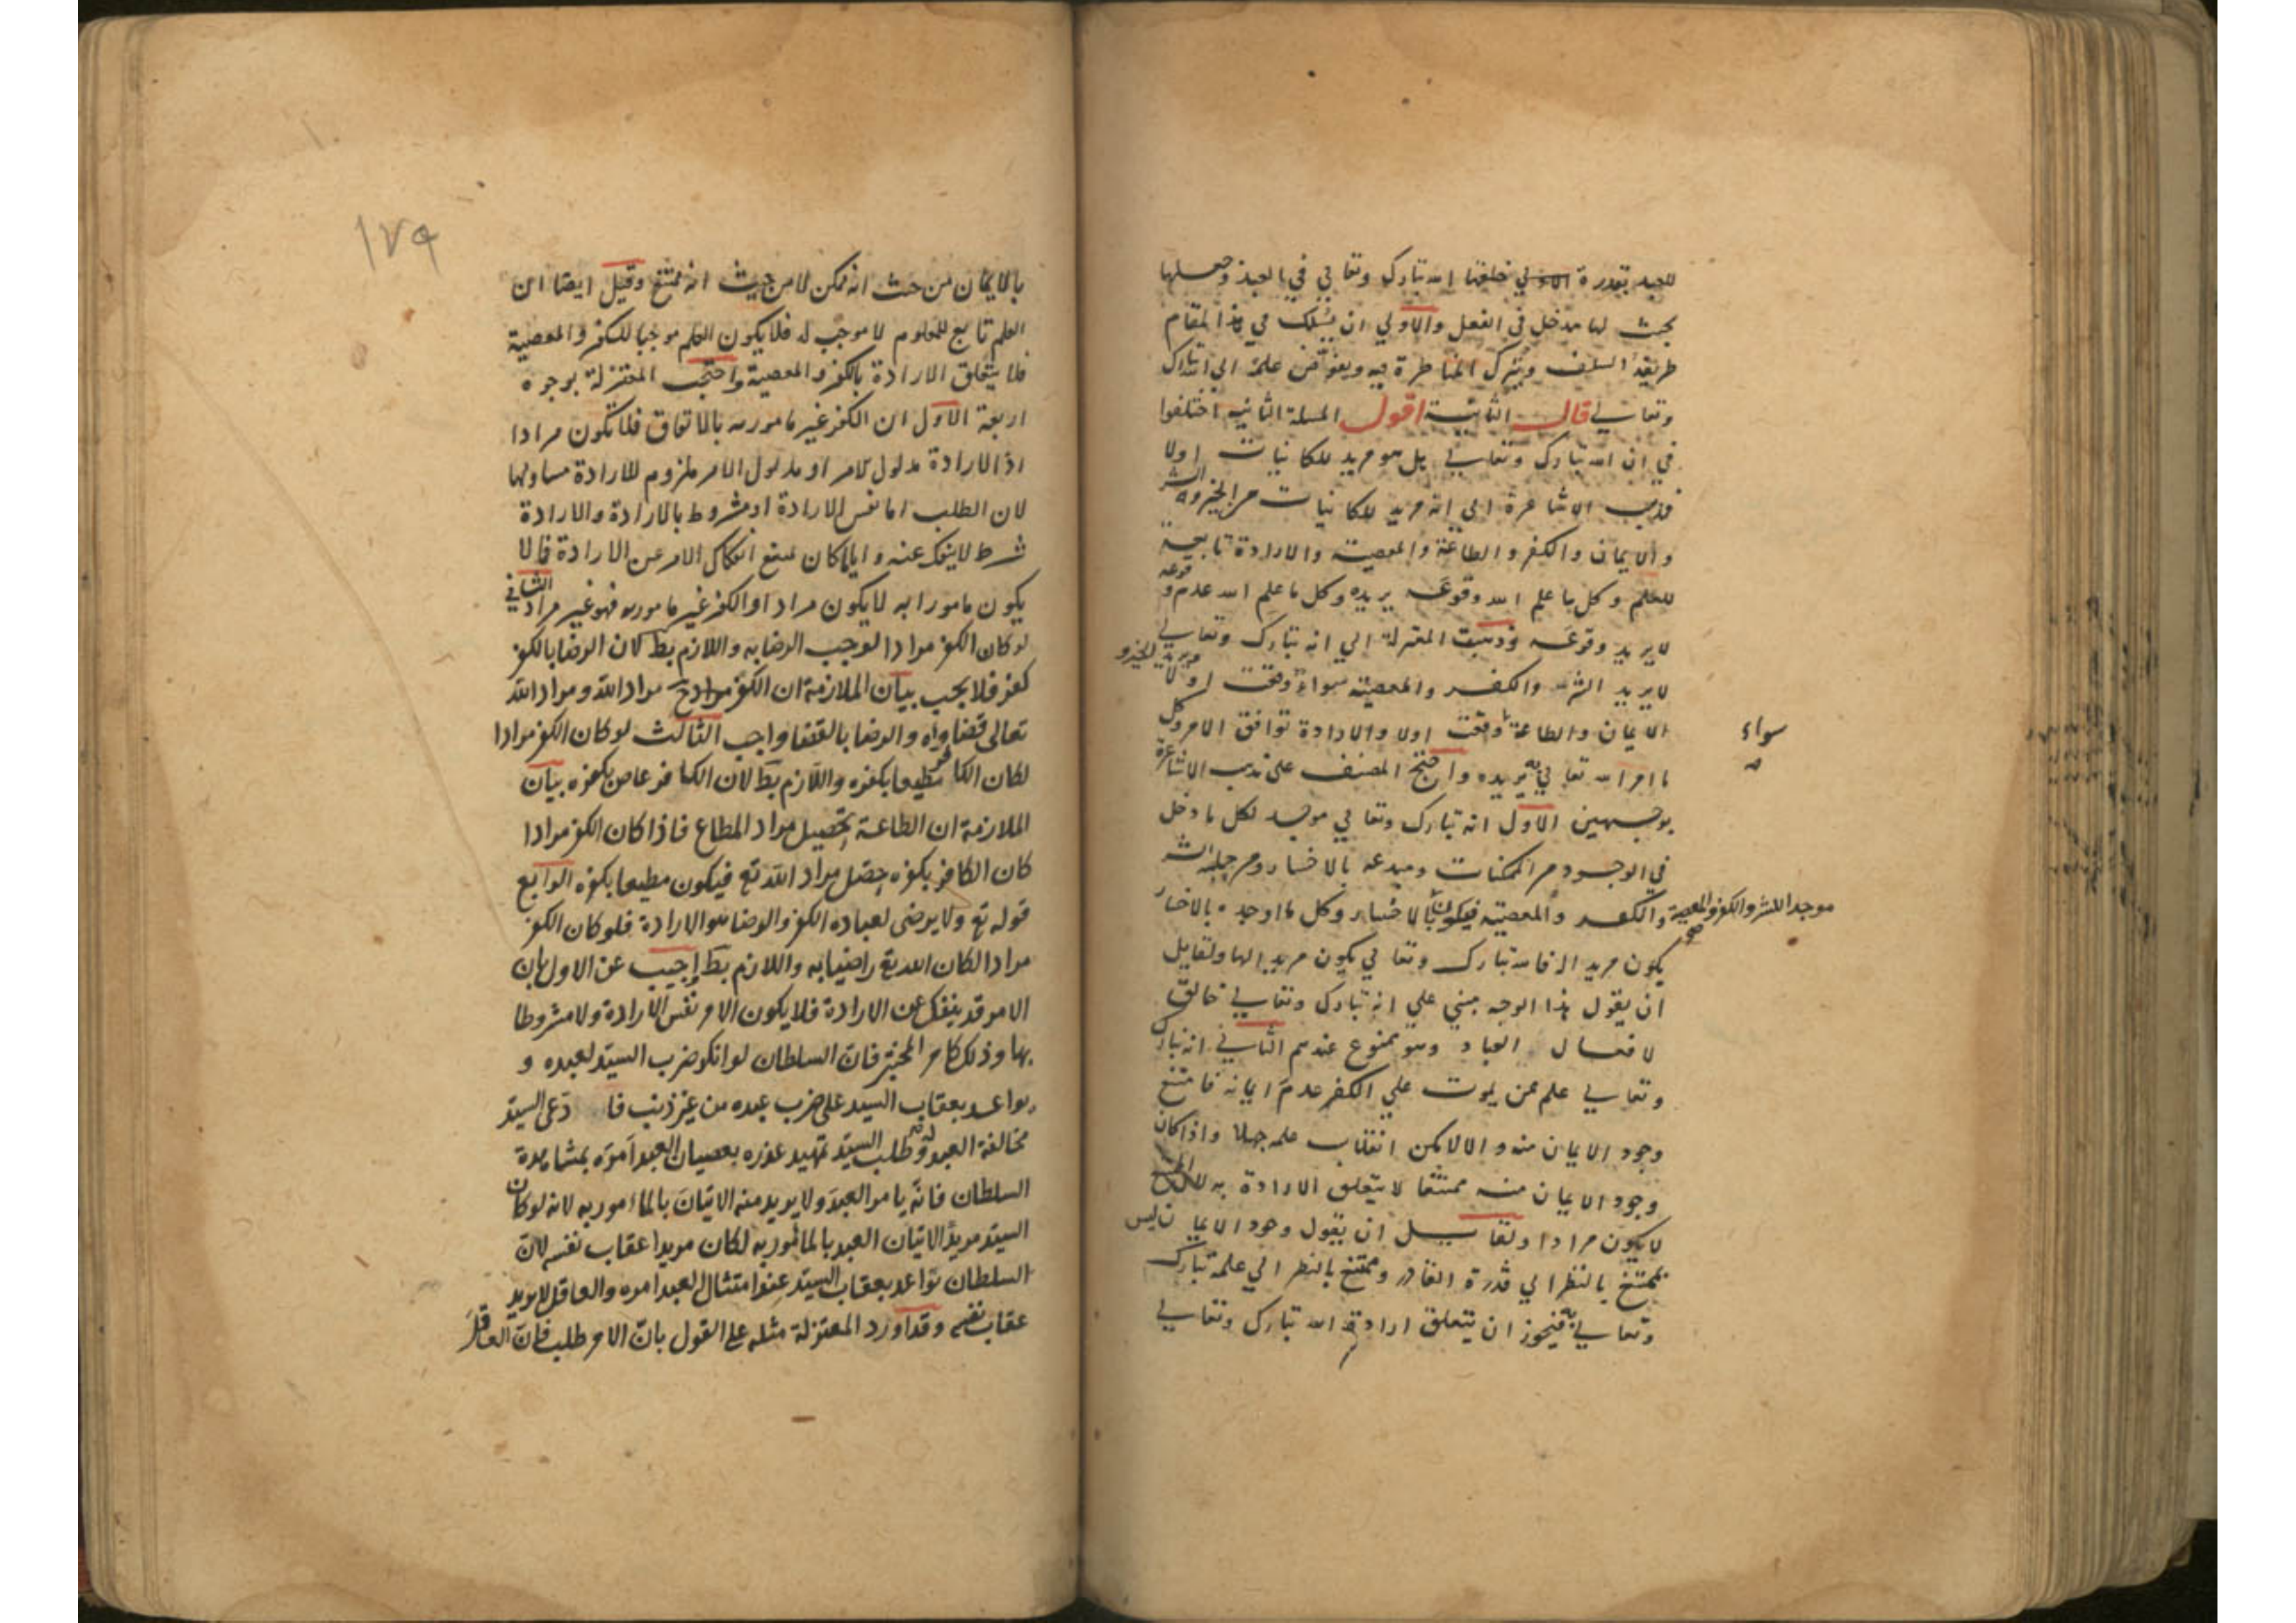 للعبد بقدرة خلقها الله تبارك وتعالي في العبد وجعلها
بحيث لها مدخل في الفعل والاولي ان يسلك في هذا المقام
طريقة السلف ويترك المناظرة فيه ويفوض علمه الي الله تبارك
وتعالي قال الثانية اقول المسلة الثانية اختلفوا
في ان الله تبارك وتعالي هل هو مريد للكائنات اولا
فذهب الاشاعرة الى انه مريد للكائنات من الخير والشر
والايمان والكفر والطاعة والمعصية والارادة تابعة
للعلم وكل ما علم الله وقوعه يريده وكل ما علم الله عدم وقوعه
لا يريد وقوعه وذهبت المعتزلة الي انه تبارك وتعالي
لا يريد الشر والكفر والمعصية سواء وقعت او لا ويريد الخير و
الايمان والطاعة وقعت اولا والارادة توافق الامر وكل
سواء
ما امر الله تعالي به يريده واحتج المصنف على مذهب الاشاعرة
بوجهين الاول انه تبارك وتعالي موجد لكل ما دخل
في الوجود من الممكنات ومبدعه بالاختيار ومن جملته الشر
والكفر والمعصية فيكون بالاختيار وكل ما اوجده بالاختيار
موجدا للشر والكفر والمعصية صح
يكون مريدا له فالله تبارك وتعالي يكون مريدا لها ولقايل
ان يقول هذا الوجه مبني علي انه تبارك وتعالي خالق
لافعال العباد وهو ممنوع عندهم الثاني انه تبارك
وتعالي علم ممن يموت علي الكفر عدم ايمانه فامتنع
وجود الايمان منه والا لامكن انقلاب علمه جهلا واذا كان
وجود الايمان منه ممتنعا لا يتعلق الارادة به
لا يكون مرادا ولقايل ان يقول وجود الايمان ليس
بممتنع بالنظر الي قدرة القادر وممتنع بالنظر الي علمه تبارك
وتعالي به فيجوز ان يتعلق ارادة الله تبارك وتعالي
١٧٩
بالايمان من حيث انه ممكن لا من حيث انه ممتنع وقيل ايضا ان
العلم تابع للمعلوم لا موجب له فلا يكون العلم موجبا للكفر والمعصية
فلا يتعلق الارادة بالكفر والمعصية واحتجت المعتزلة بوجوه
اربعة الاول ان الكفر غير مامور به بالاتفاق فلا تكون مرادا
اذ الارادة مدلول الامر او مدلول الامر ملزوم للارادة مساو لها
لان الطلب اما نفس الارادة او مشروط بالارادة والارادة
شرط لا ينفك عنه وايا ما كان يمتنع انفكاك الامر عن الارادة فالا
يكون مامورا به لا يكون مرادا والكفر غير مامور به فهو غير مراد الثاني
لو كان الكفر مرادا لوجب الرضا به واللازم بط لان الرضا بالكفر
كفر فلا يجب بيان الملازمة ان الكفر مراد الله ومراد الله
تعالى قضاؤه والرضا بالقضا واجب الثالث لو كان الكفر مرادا
لكان الكافر مطيعا بكفره واللازم بط لان الكافر عاص بكفره بيان
الملازمة ان الطاعة تحصيل مراد المطاع فاذا كان الكفر مرادا
كان الكافر بكفره حصّل مراد الله تع فيكون مطيعا بكفره الرابع
قوله تع ولا يرضى لعباده الكفر والرضا هو الارادة فلو كان الكفر
مرادا لكان الله تع راضيا به واللازم بط اجيب عن الاول بان
الامر قد ينفك عن الارادة فلا يكون الامر نفس الارادة ولا مشروطا
بها وذلك كامر المختبر فان السلطان لو انكر ضرب السيد لعبده و
تواعد بعقاب السيد على ضرب عبده من غير ذنب فا دعى السيد
مخالفة العبد له وطلب السيد تمهيد عذره بعصيان العبد امره بمشاهدة
السلطان فانه يامر العبد ولا يريد منه الاتيان بالمامور به لانه لو كان
السيد مريدا لاتيان العبد بالمامور به لكان مريدا عقاب نفسه لان
السلطان تواعد بعقاب السيد عند امتثال العبد امره والعاقل لا يريد
عقاب نفسه وقد اورد المعتزلة مثله على القول بان الامر طلب فان العاقل